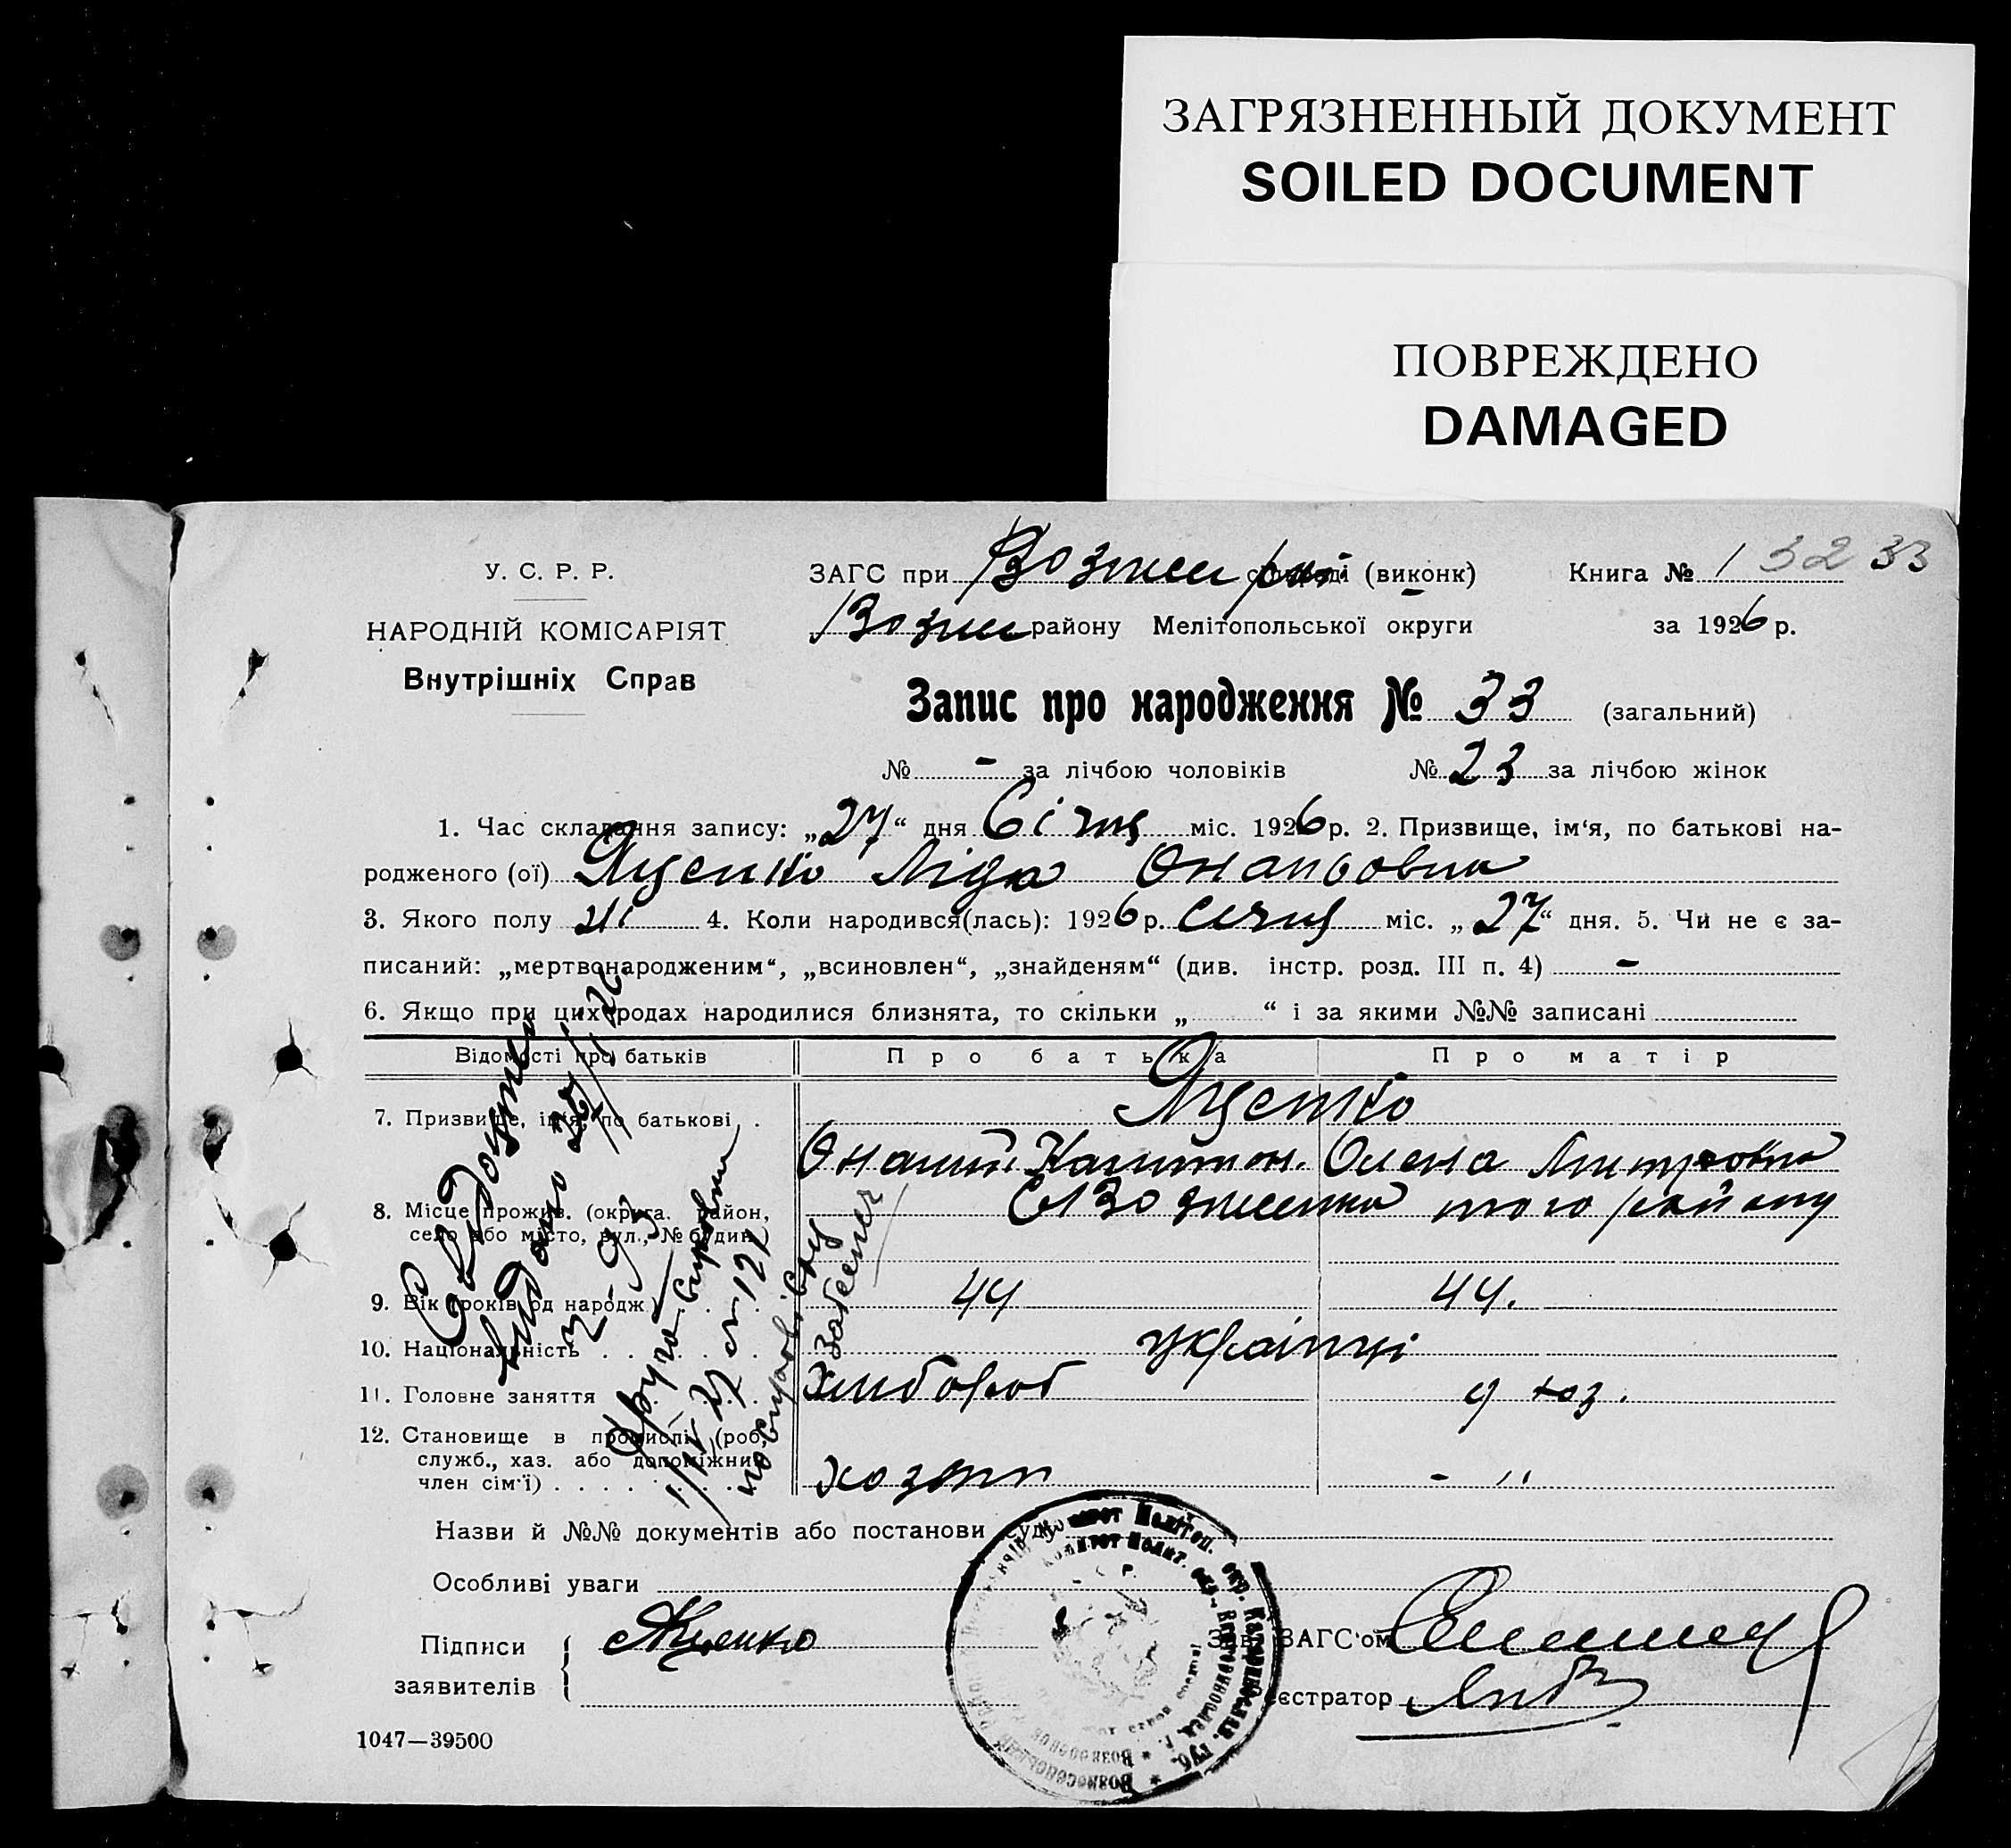 ЗАГРЯЗНЕННЫЙ ДОКУМЕНТ
SOILED DOCUMENT
ПОВРЕЖДЕНО
DAMAGED
У. С. Р. Р.
НАРОДНІЙ КОМІСАРІЯТ
Внутрішніх Справ
ЗАГС при Вознес рай (виконк) Книга № 1 32 33
Вознес району Мелітопольської округи за 1926 р.
Запис про народження № 33 (загальний)
№ - за лічбою чоловіків № 23 за лічбою жінок
1. Час складання запису: „27“ дня Січня міс. 1926 р. 2. Призвище, ім‘я, по батькові на-
родженого (ої) Яценко Ліда Онапровна
3. Якого полу ж 4. Коли народився(лась): 1926 р. Січня міс. „27“ дня. 5. Чи не є за-
писаний: „мертвонародженим“, „всиновлен“, „знайденям“ (див. інстр. розд. III п. 4) -
6. Якщо при цих родах народилися близнята, то скільки „ “ і за якими №№ записані
Відомості про батьків Про батька Про матір
7. Призвище, ім‘я, по батькові Яценко
Онаній Капитон. Олена Дмитровна
8. Місце прожив. (округа. район, село або місто, вул., № будин.) с. Вознесенка того району
9. Вік (років од народж.) 44 44.
10. Національність українці
11. Головне заняття хлибороб д хоз.
12. Становище в промислі (роб., служб., хаз. або допоміжний член сім‘ї) хозяин - "
Свідоцтво
видано
№ 93
Назви й №№ документів або постанови суду
Особливі уваги
Підписи заявителів Яценко
Зав. ЗАГС‘ом
Реєстратор
1047—39500